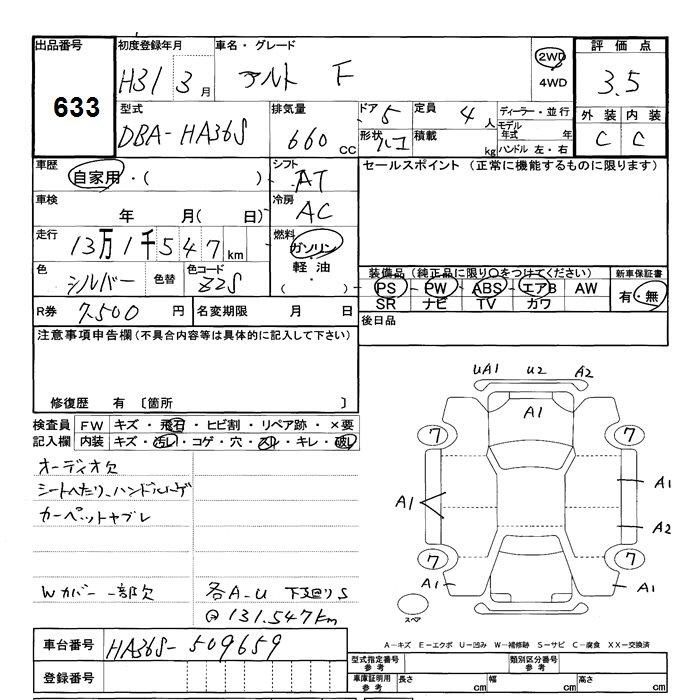 出品番号 初度登録年月 車名・グレード 2WD 評価点
633 H31 3月 アルト F 4WD 3.5
型式 排気量 ドア 5 定員 4人 ディーラー・並行 外装 内装
DBA-HA36S 660 CC 形状 積載 kg モデル年式 年 ハンドル 左・右 C C
車歴 自家用・( ) シフト AT セールスポイント (正常に機能するものに限ります)
車検 年 月( 日) 冷房 AC
走行 13万1千547km 燃料 ガソリン 軽油 ( )
色 シルバー 色替 色コード Z2S 装備品(純正品に限り○をつけてください) 新車保証書
PS - PW - ABS - エアB AW 有・無
SR ナビ TV カワ
R券 7,500円 名変期限 月 日 後日品
注意事項申告欄(不具合内容等は具体的に記入して下さい)
修復歴 有 〔箇所 〕
検査員 FW キズ・飛石・ヒビ割・リペア跡・×要
記入欄 内装 キズ・汚レ・コゲ・穴・スレ・キレ・破レ
オーディオ欠
シートへたり、ハンドルハゲ
カーペットヤブレ
Wカバー一部欠 各A-U 下廻りS
@131.547km
UA1 U2 A2
A1
7 7
A1 A1
A2
7 7
A1 A1
スペア
A-キズ E-エクボ U-凹み W-補修跡 S-サビ C-腐食 XX-交換済
車台番号 HA36S-509659
登録番号
型式指定番号 参考 類別区分番号 参考
車庫証明用 参考 長さ cm 幅 cm 高さ cm